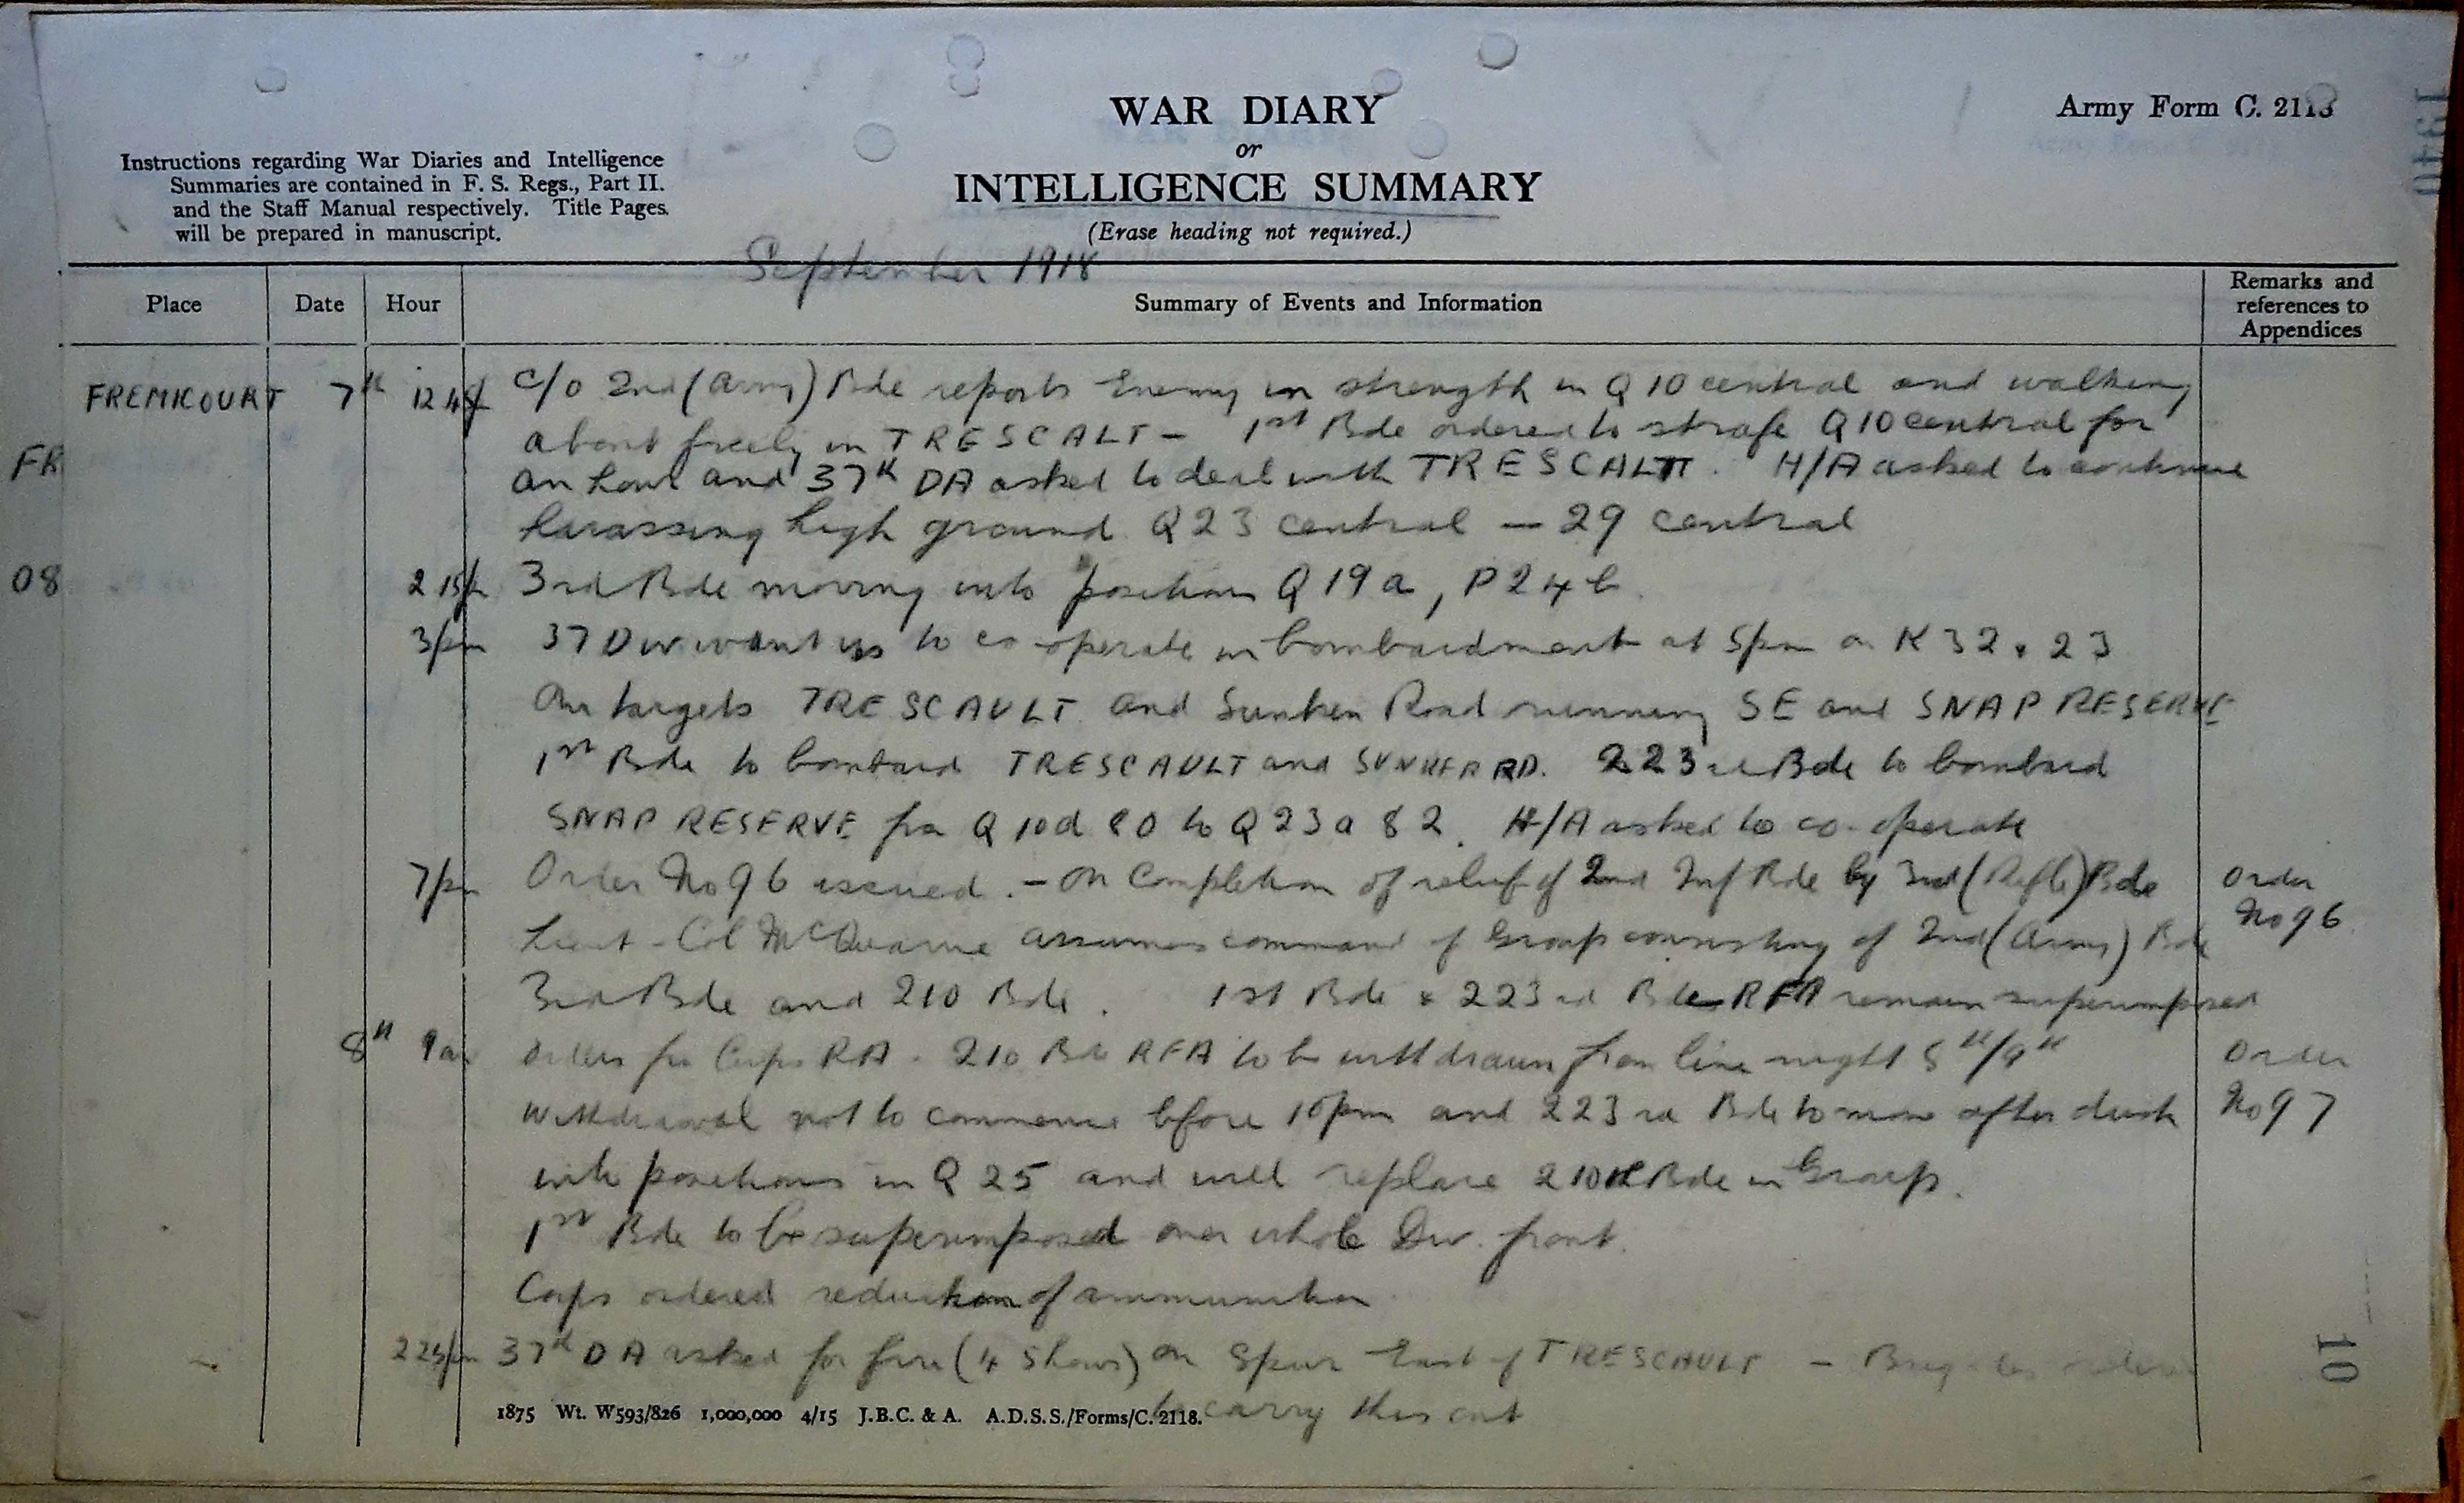 WAR DIARY
or
INTELLIGENCE SUMMARY
(Erase heading not required.)
Army Form C. 2118
Instructions regarding War Diaries and Intelligence
Summaries are contained in F. S. Regs., Part II.
and the Staff Manual respectively. Title Pages
will be prepared in manuscript.
September 1918
Place Date Hour Summary of Events and Information Remarks and references to Appendices
FREMICOURT 7th 12 45p C/O 2nd (Army) Bde reports Enemy in strength in Q 10 central and walking
about freely in TRESCALT - 1st Bde ordered to strafe Q 10 central for
an hour and 37th DA asked to deal with TRESCALT. H/A asked to continue
harassing high ground Q 23 central - 29 central
2 15p 3rd Bde moving into position Q 19 a, P 24 b.
3pm 37 Div want us to co-operate in bombardment at 5pm on K 32 . 23
Our targets TRESCAULT and Sunken Road running SE and SNAP RESERVE
1st Bde to bombard TRESCAULT and SUNKEN RD. 223rd Bde to bombard
SNAP RESERVE fm Q 10 d 80 to Q 23 a 82. H/A asked to co-operate
7pm Order No 96 issued. - On Completion of relief of 2nd Inf Bde by 3rd (Rifle) Bde Order
Lieut-Col McQuarrie assumes command of Group consisting of 2nd (Army) Bde No 96
3rd Bde and 210 Bde. 1st Bde & 223rd Bde RFA remain superimposed
8th 9am Orders fm Corps RA. 210 Bde RFA to be withdrawn from line night 8th/9th Order
Withdrawal not to commence before 10pm and 223rd Bde to move after dusk No 97
into positions in Q 25 and will replace 210th Bde in Group.
1st Bde to be superimposed over whole Div. front.
Corps ordered reduction of ammunition
2 25pm 37th DA asked for fire (4 Shows) on Spur East of TRESCAULT -
to carry this out
1875 Wt. W593/826 1,000,000 4/15 J.B.C. & A. A.D.S.S./Forms/C. 2118.
FR
08
10